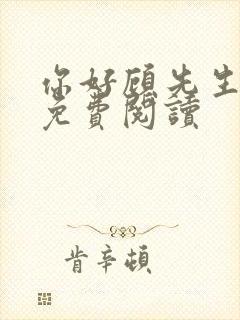 你好顾先生
免費閱讀
肯辛頓